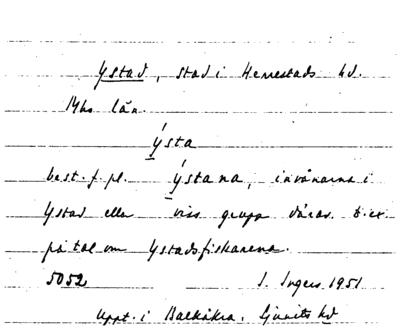 Ystad, stad i Herrestads hd.
Mhs län.
Ýsta
best. f. pl. Ýstana, invånarna i
Ystad eller viss grupp därav t.ex.
på tal om Ystadsfiskarena.
5052 I. Ingers 1951
Uppt. i Balkåkra, Ljunits hd